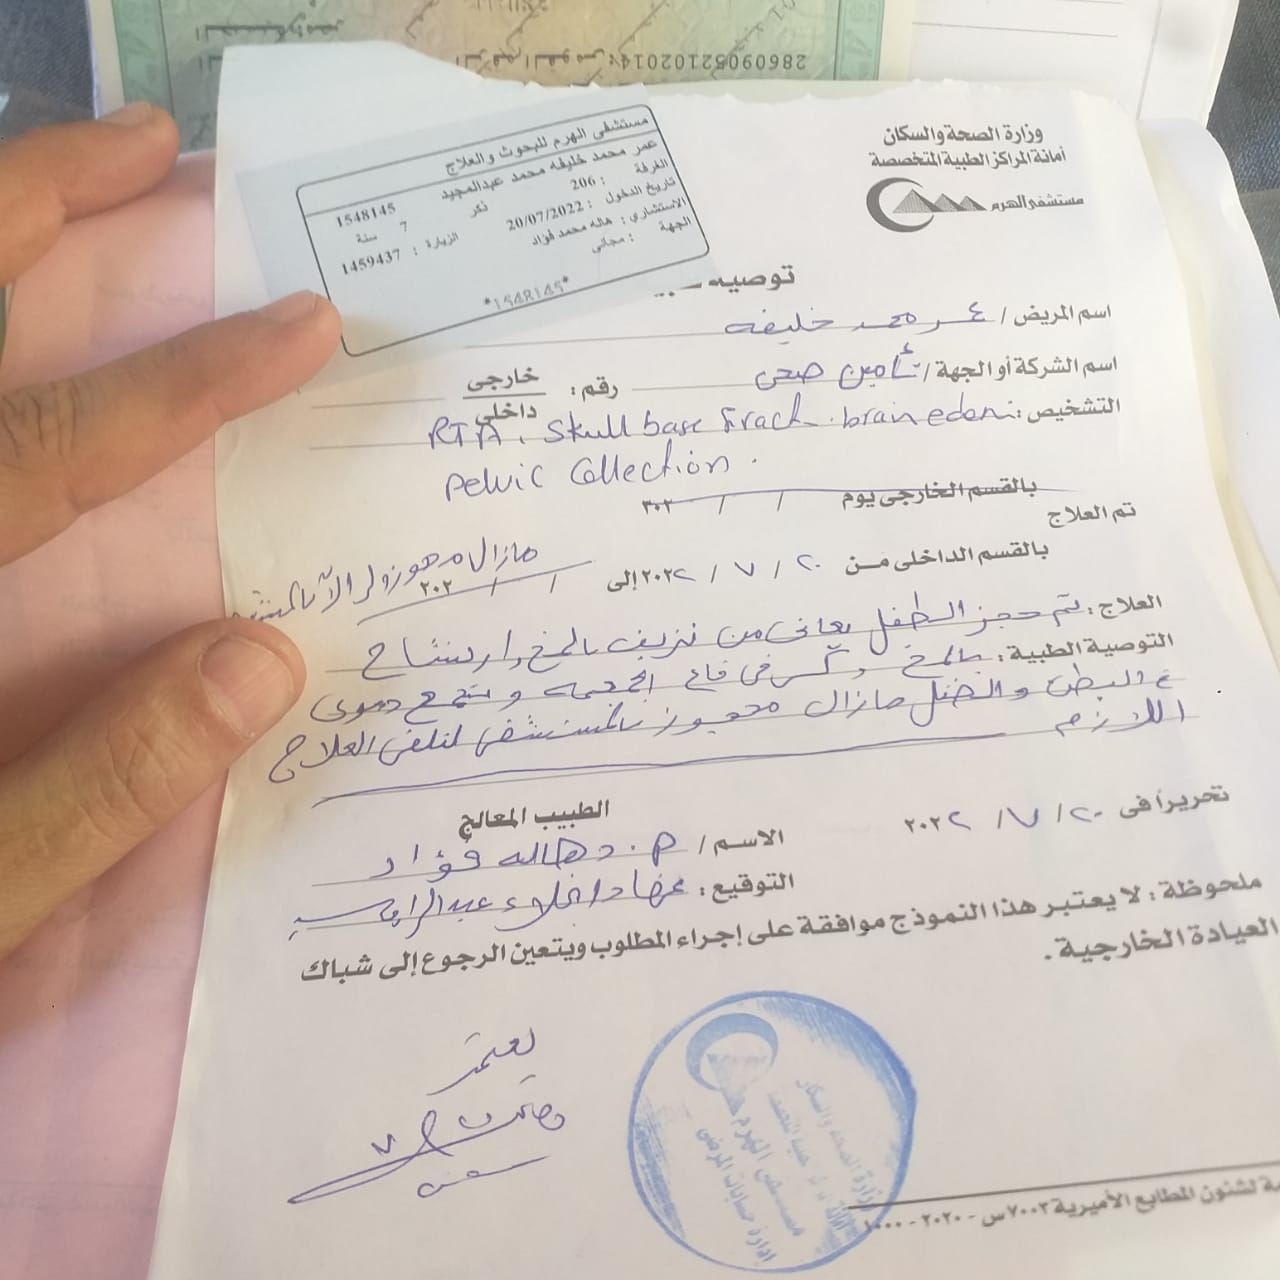 28609052102014
وزارة الصحة والسكان
أمانة المراكز الطبية المتخصصة
مستشفى الهرم
مستشفى الهرم للبحوث والعلاج
عمر محمد خليفه محمد عبدالمجيد 1548145
الغرفة : 206 ذكر 7 سنة
تاريخ الدخول : 20/07/2022 الزيارة : 1459437
الاستشاري : هاله محمد فؤاد
الجهة : مجاني
*1548145*
توصيه
اسم المريض / عمر محمد خليفه
اسم الشركة أو الجهة / تأمين صحى رقم : خارجى
داخلى
التشخيص : RTA. Skull base Fract. brain edema
pelvic Collection.
بالقسم الخارجى يوم / / ٢٠٢
تم العلاج
بالقسم الداخلى من ٢٠ / ٧ / ٢٠٢٢ إلى / / ٢٠٢ مازال محجوز الى الآن
العلاج : تم حجز الطفل يعانى من نزيف بالمخ وارتشاح
التوصية الطبية : بالمخ وكسر فى قاع الجمجمه وتجمع دموى
فى البطن والطفل مازال محجوز بالمستشفى لتلقى العلاج
اللازم
تحريراً فى ٢٠ / ٧ / ٢٠٢٢
الطبيب المعالج
الاسم / د. هاله فؤاد
التوقيع :
ملحوظة : لا يعتبر هذا النموذج موافقة على إجراء المطلوب ويتعين الرجوع إلى شباك
العيادة الخارجية .
يعتمد
وزارة الصحة والسكان
مستشفى الهرم
إدارة حسابات المرضى
لشئون المطابع الأميرية ٧٠٠٣ س - ٢٠٢٠ - ١٠٠٠